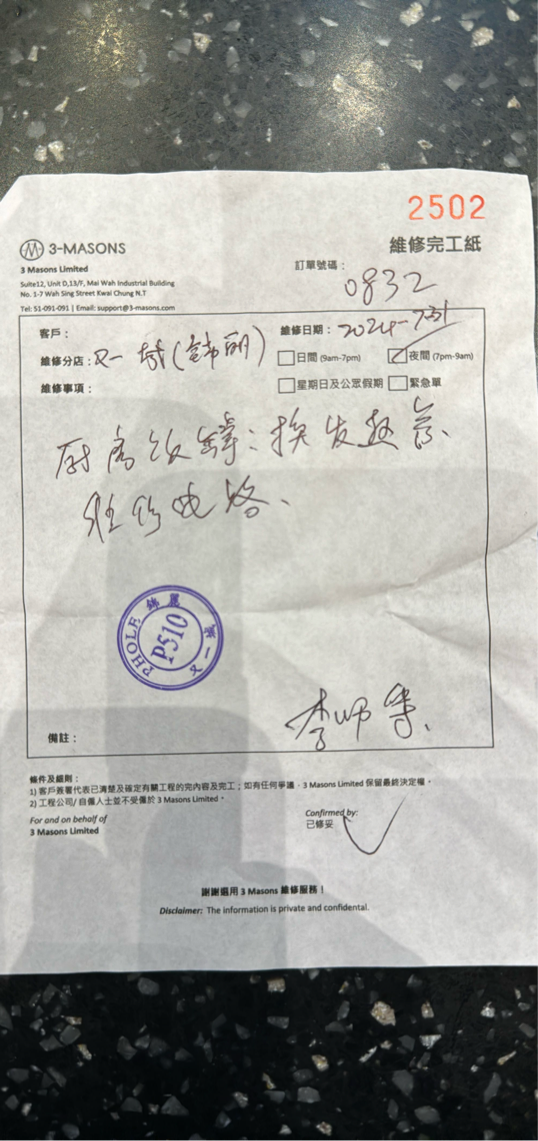 2502
3-MASONS
維修完工紙
3 Masons Limited
Suite12, Unit D,13/F, Mai Wah Industrial Building
No. 1-7 Wah Sing Street Kwai Chung N.T
Tel: 51-091-091 | Email: support@3-masons.com
訂單號碼：
0832
客戶：
維修日期：2024-7-31
維修分店：又一城
日間 (9am-7pm) 夜間 (7pm-9am)
維修事項：
星期日及公眾假期 緊急單
厨房饭
换发热
电路、
PHOLE 錦麗 又一城
P510
李师
備註：
條件及細則：
1) 客戶簽署代表已清楚及確定有關工程的完內容及完工；如有任何爭議，3 Masons Limited 保留最終決定權。
2) 工程公司/自僱人士並不受僱於 3 Masons Limited。
For and on behalf of
3 Masons Limited
Confirmed by:
已修妥
謝謝選用 3 Masons 維修服務！
Disclaimer: The information is private and confidental.